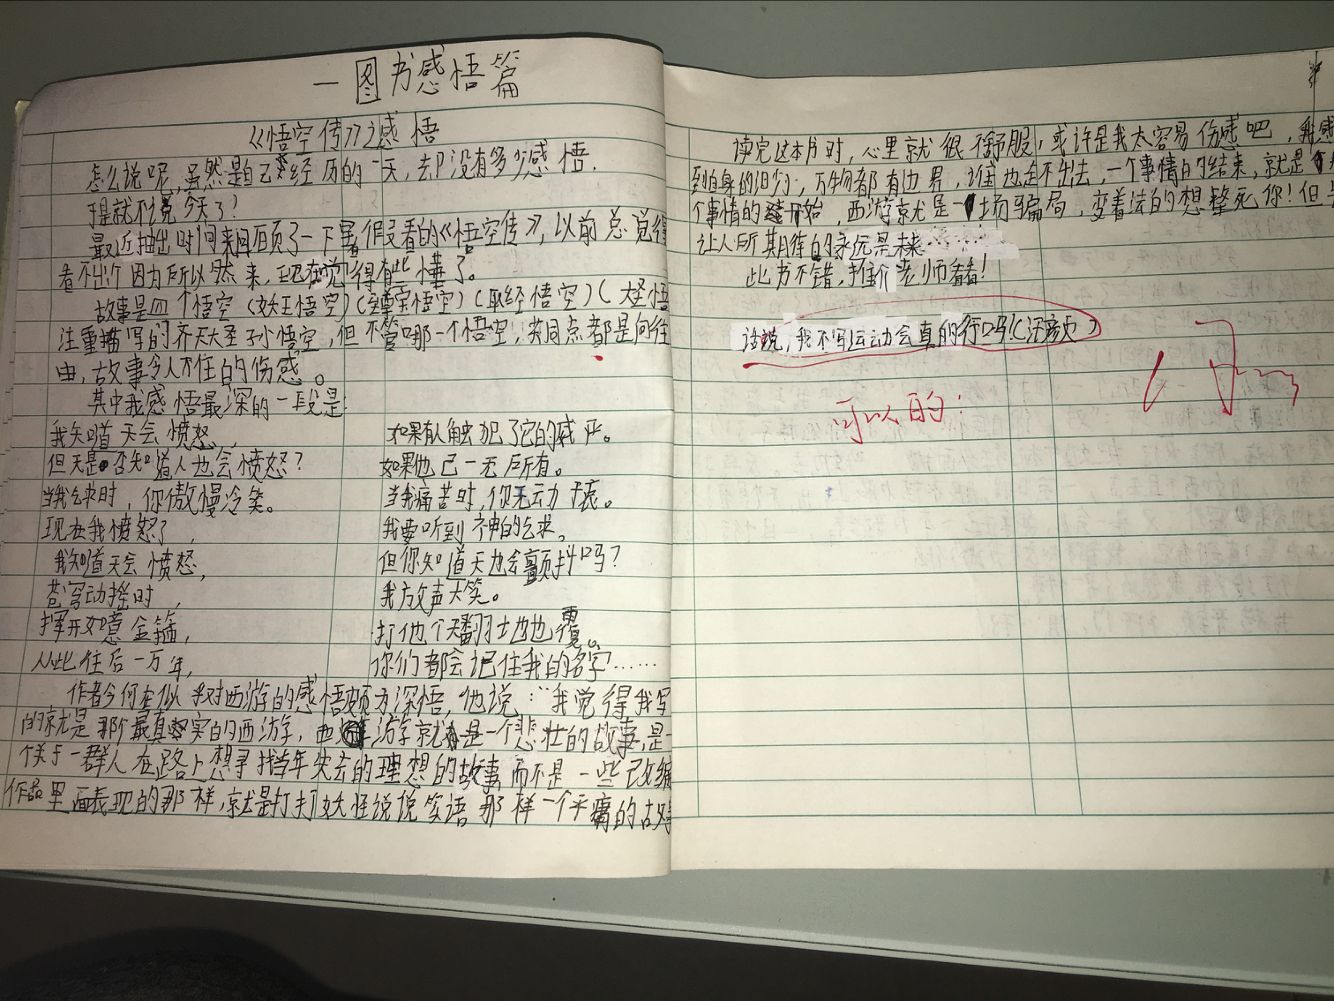 一图书感悟篇
《悟空传》之感悟
怎么说呢,虽然是自己经历的一天,却没有多少感悟.
于是就不说今天了!
最近抽出时间来回顾了一下暑假看的《悟空传》,以前总觉得
看不出个因为所以然来,现在觉得有些懂了。
故事是四个悟空(妖王悟空)(至尊宝悟空)(取经悟空)(大圣悟
注重描写的齐天大圣孙悟空,但不管哪一个悟空;共同点都是向往
由,故事令人不住的伤感。
其中我感悟最深的一段是:
我知道天会愤怒, 如果有人触犯了它的威严。
但天是否知道人也会愤怒? 如果他已一无所有。
当我乞求时,你傲慢冷笑。 当我痛苦时,你无动于衷。
现在我愤怒了, 我要听到神的乞求。
我知道天会愤怒, 但你知道天也会颤抖吗?
苍穹动摇时, 我放声大笑。
挥开如意金箍, 打他个天翻地也覆。
从此往后一万年, 你们都会记住我的名字……
作者今何在似乎对西游的感悟颇为深悟,他说:“我觉得我写
的就是那个最真实的西游,西游就是一个悲壮的故事,是一
个关于一群人在路上想寻找当年失去的理想的故事,而不是一些改编
作品里面表现的那样,就是打打妖怪说说笑语那样一个平庸的故事
读完这本书时,心里就很不舒服,或许是我太容易伤感吧,我感
到自身的渺小,万物都有边界,谁也走不出去,一个事情的结束,就是
个事情的开始,西游就是一场骗局,变着法的想整死你!但
让人所期待的永远是未来……
此书不错,推介老师看看!
话说,我不写运动会真的行吗(活页)
可以的:
阅